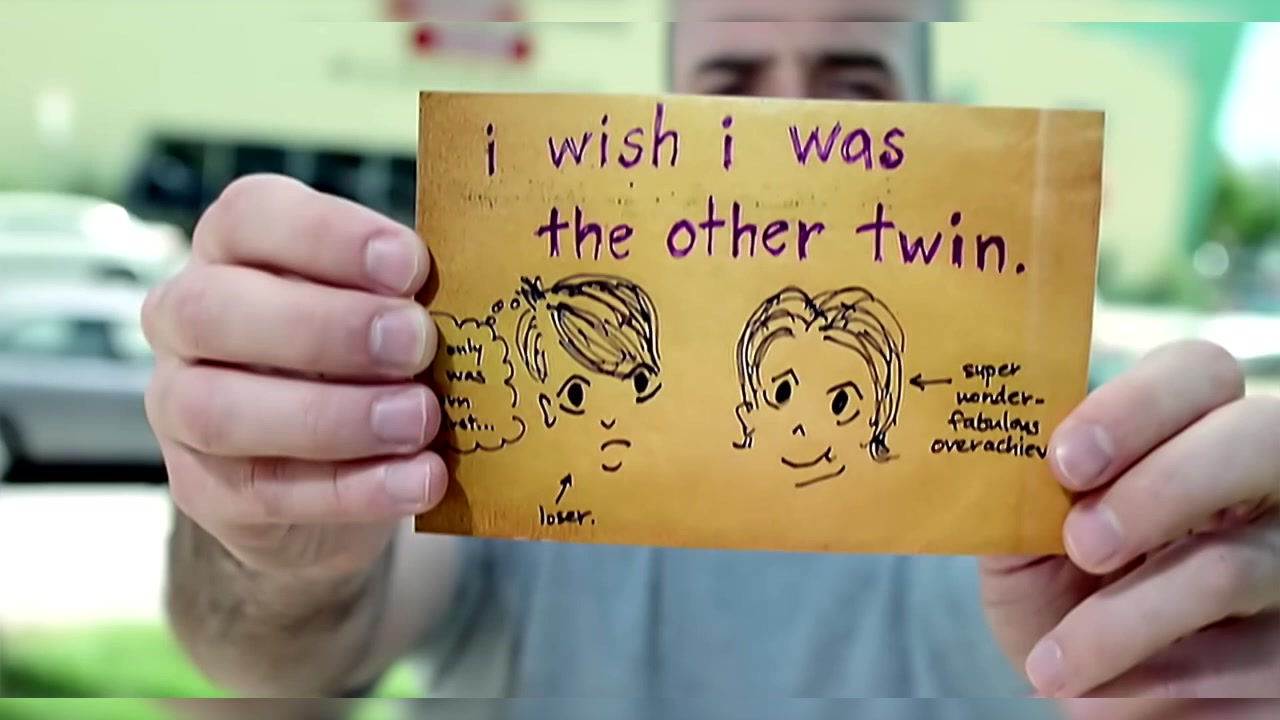 i wish i was
the other twin.
only
was
super
wonder-
fabulous
overachiev
loser.